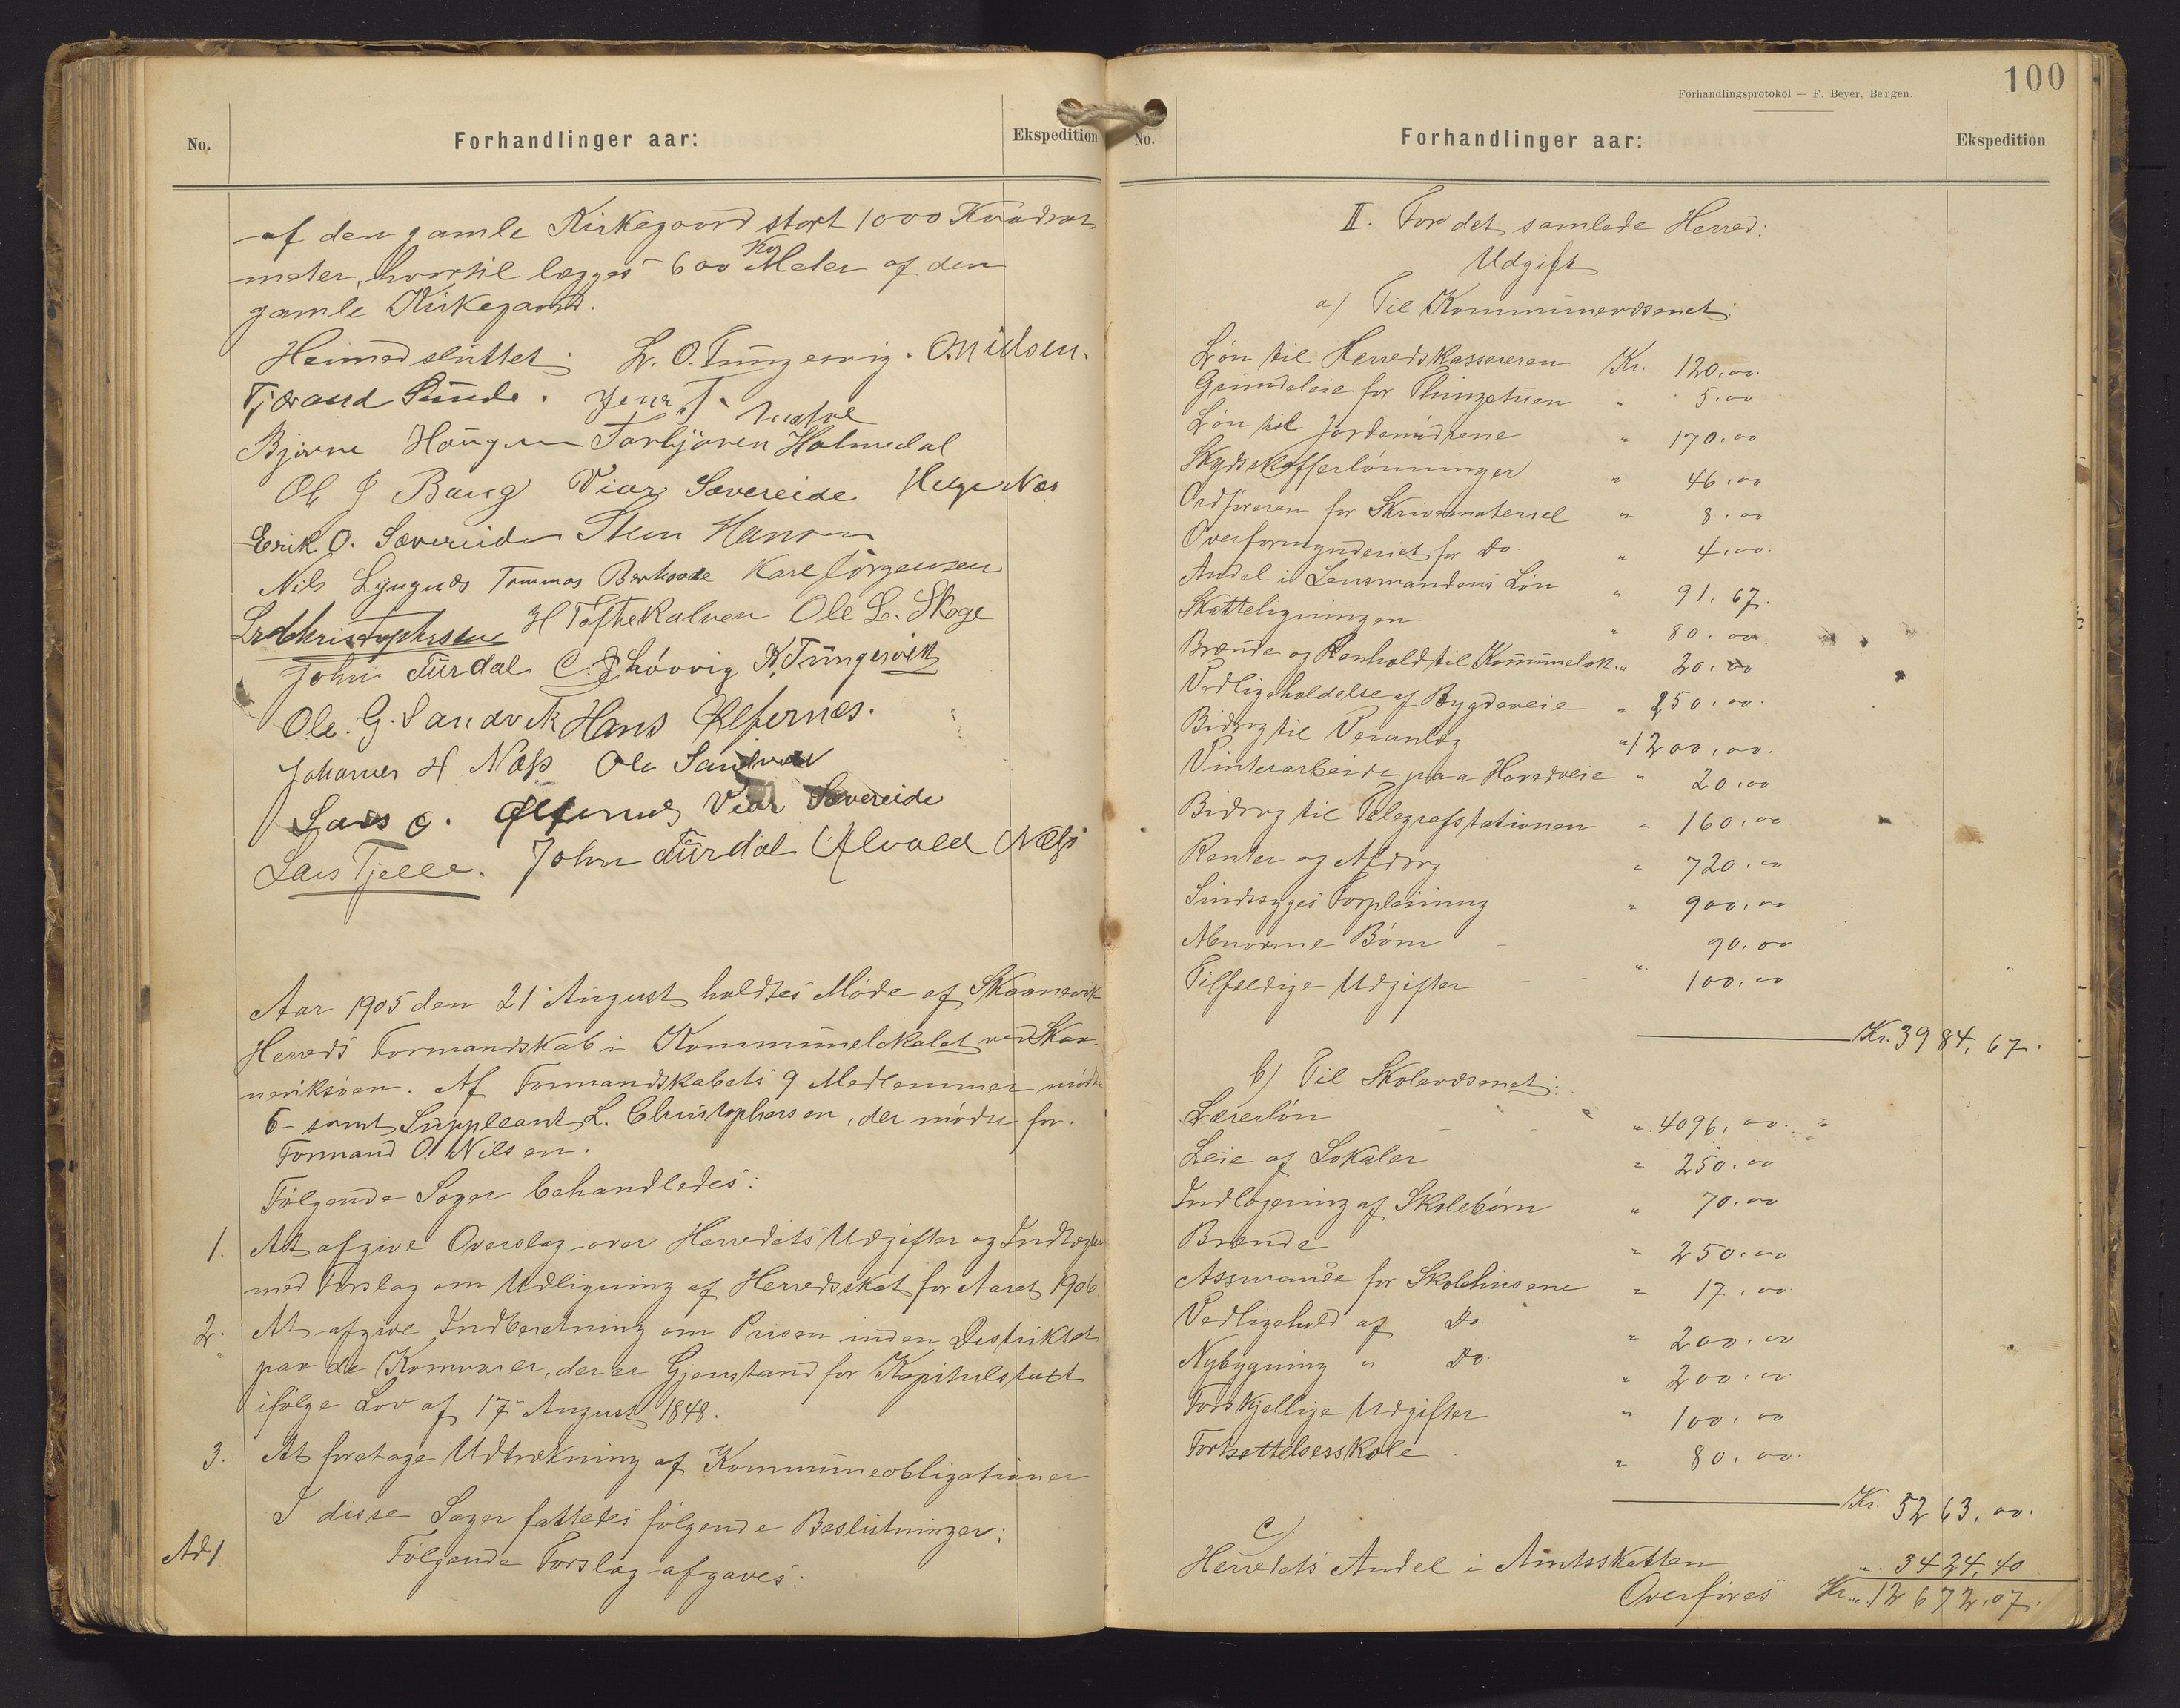 No. Forhandlinger aar: Ekspedition
af den gamle Kirkegaard stort 1000 Kvadrat
meter, hvortil lægges 600 Kv Meter af den
gamle Kirkegaard.
Hermed sluttet. L. O. Tungesvig. O. Nilsen.
Tjærand Sunde. Jens T.
Bjørne Haugen Torbjøren Holmedal
Ole J Bang Viar Sævereide Helge Næs
Erik O. Sævereide Sten Hansen
Nils Lyngnæs Tommas Berhovde Karl Jørgensen
Lrd Christophersen H Toftekalven Ole L. Skoge
John Furdal C. J. Løvvig K. Tungesvik
Ole. G. Sandvik Hans Ølfernæs.
Johannes H Næss Ole Sandvik
Lars O. Ølfernæs Viar Sævereide
Lars Tjelle. John Furdal Alvald Næss
Aar 1905 den 21 August holdtes Møde af Skaanevik
Herreds Formandskab i Kommunelokalet ved Skaa-
neviksøen. Af Formandskabets 9 Medlemmer mødte
6 - samt Suppleant L. Christophersen, der mødte for
Formand O. Nilsen.
Følgende Sager behandledes:
1. At afgive Overslag over Herredets Udgifter og Indtægter
med Forslag om Udligning af Herredsskat for Aaret 1906
2. At afgive Indberetning om Prisen inden Distriktet
paa de Kornvarer, der er Gjenstand for Kapitelstaxt
ifølge Lov af 17 August 1848.
3. At foretage Udtrækning af Kommuneobligationer
I disse Sager fattedes følgende Beslutninger:
Ad 1 Følgende Forslag afgaves:
100
Forhandlingsprotokol — F. Beyer, Bergen.
No. Forhandlinger aar: Ekspedition
II. For det samlede Herred:
Udgift
a) Til Kommunevæsenet:
Løn til Herredskassereren Kr. 120.00
Grundeleie for Thingstuen " 5.00
Løn til Jordemødrene " 170.00
Skydsskafferlønninger " 46.00
Ordføreren for Skrivemateriel " 8.00
Overformynderiet for Do. " 4.00.
Andel i Lensmandens Løn " 91.67.
Skatteligningen " 80.00
Brænde og Renhold til Kommunelok. " 20.00
Vedligeholdelse af Bygdeveie " 250.00.
Bidrag til Veianlæg " 1200.00.
Vinterarbeide paa Hovedveie " 20.00
Bidrag til Telegrafstationen " 160.00
Renter og Afdrag " 720.00
Sindssyges Forpleining " 900.00
Abnorme Børn 90.00
Tilfældige Udgifter " 100.00
Kr. 3984.67.
b) Til Skolevæsenet:
Lærerløn " 4096.00
Leie af Lokaler " 250.00
Indlogering af Skolebørn " 70.00
Brænde " 250.00
Assurance for Skolehusene " 17.00
Vedligehold af Do. " 200.00
Nybygning " Do. " 200.00
Forskjellige Udgifter " 100.00
Fortsættelsesskole " 80.00.
Kr. 5263.00.
c)
Herredets Andel i Amtsskatten " 3424.40
Overføres Kr. 12672.07.